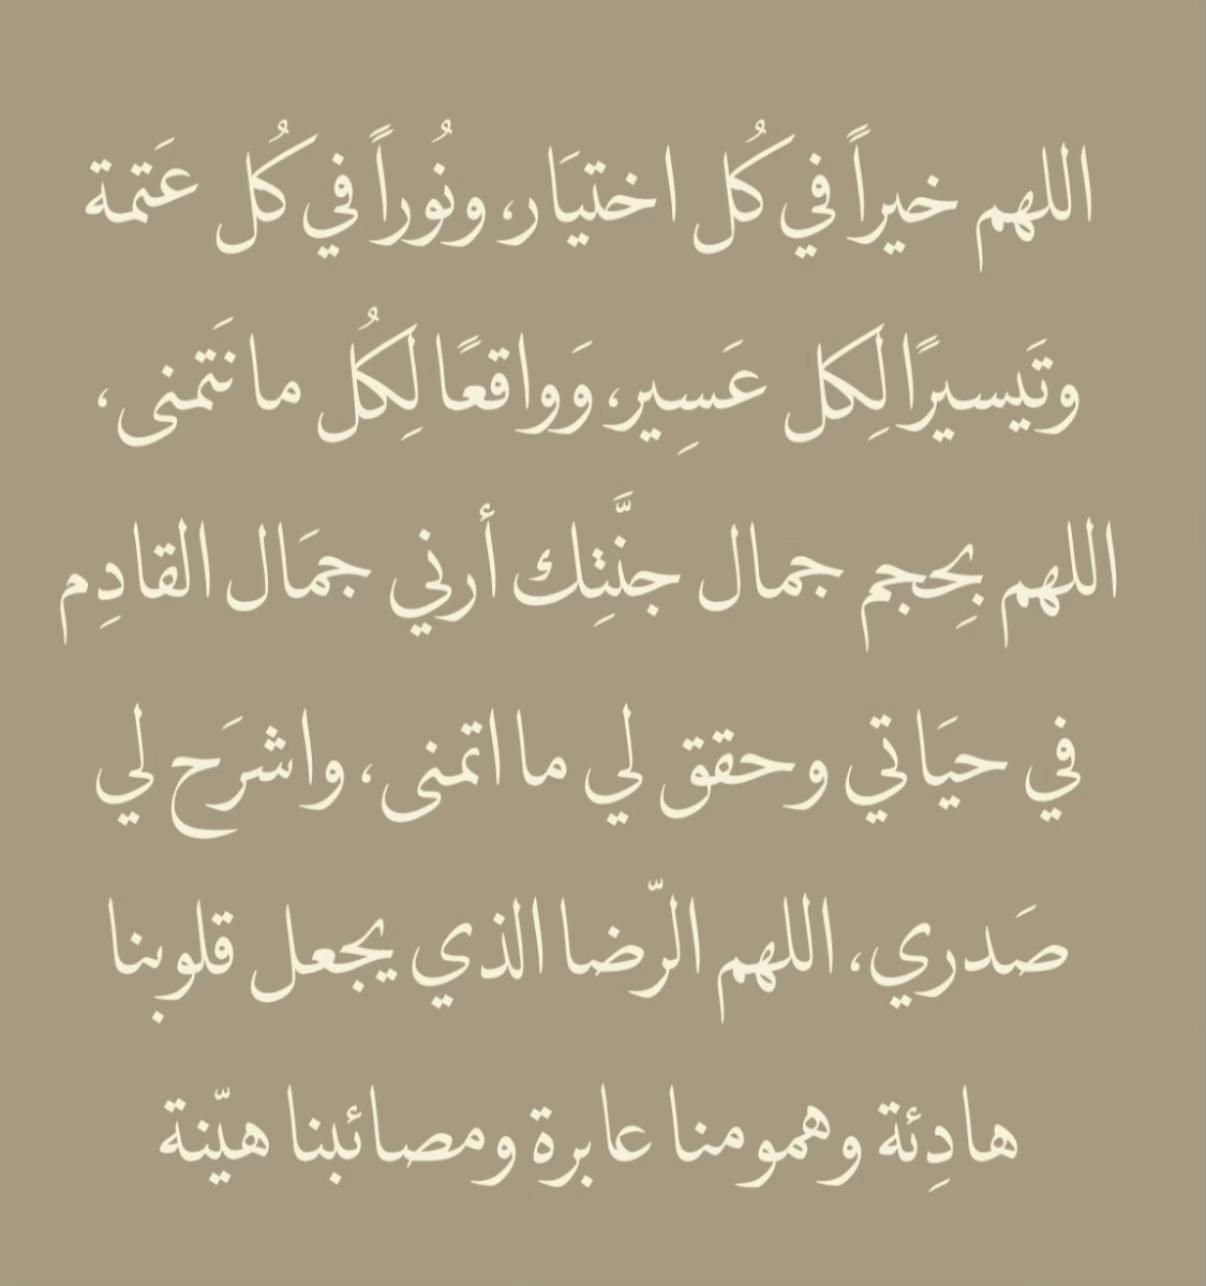 اللهم خيراً في كُل اختيَار، ونُوراً في كُل عَتمة
وتَيسيرًا لِكل عَسِير، وَواقعًا لِكُل ما نَتمنى،
اللهم بِحجم جمال جنَّتِك أرني جمَال القادِم
في حيَاتي وحقق لي ما اتمنى، واشرَح لي
صَدري، اللهم الرّضا الذي يجعل قلوبنا
هادِئة وهمومنا عابرة ومصائبنا هيّنة